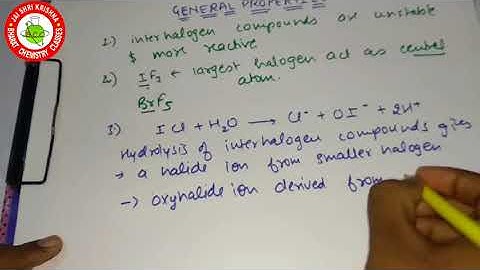 JAI SHRI KRISHNA
BCC
BHARAT CHEMISTRY CLASSES
GENERAL PROPERTIES
1) interhalogen compounds are unstable
& more reactive
2) IF7 ← largest halogen act as central
atom.
BrF5
3) ICl + H2O → Cl- + OI- + 2H+
Hydrolysis of interhalogen compounds gives
→ a halide ion from smaller halogen
→ oxyhalide ion derived from